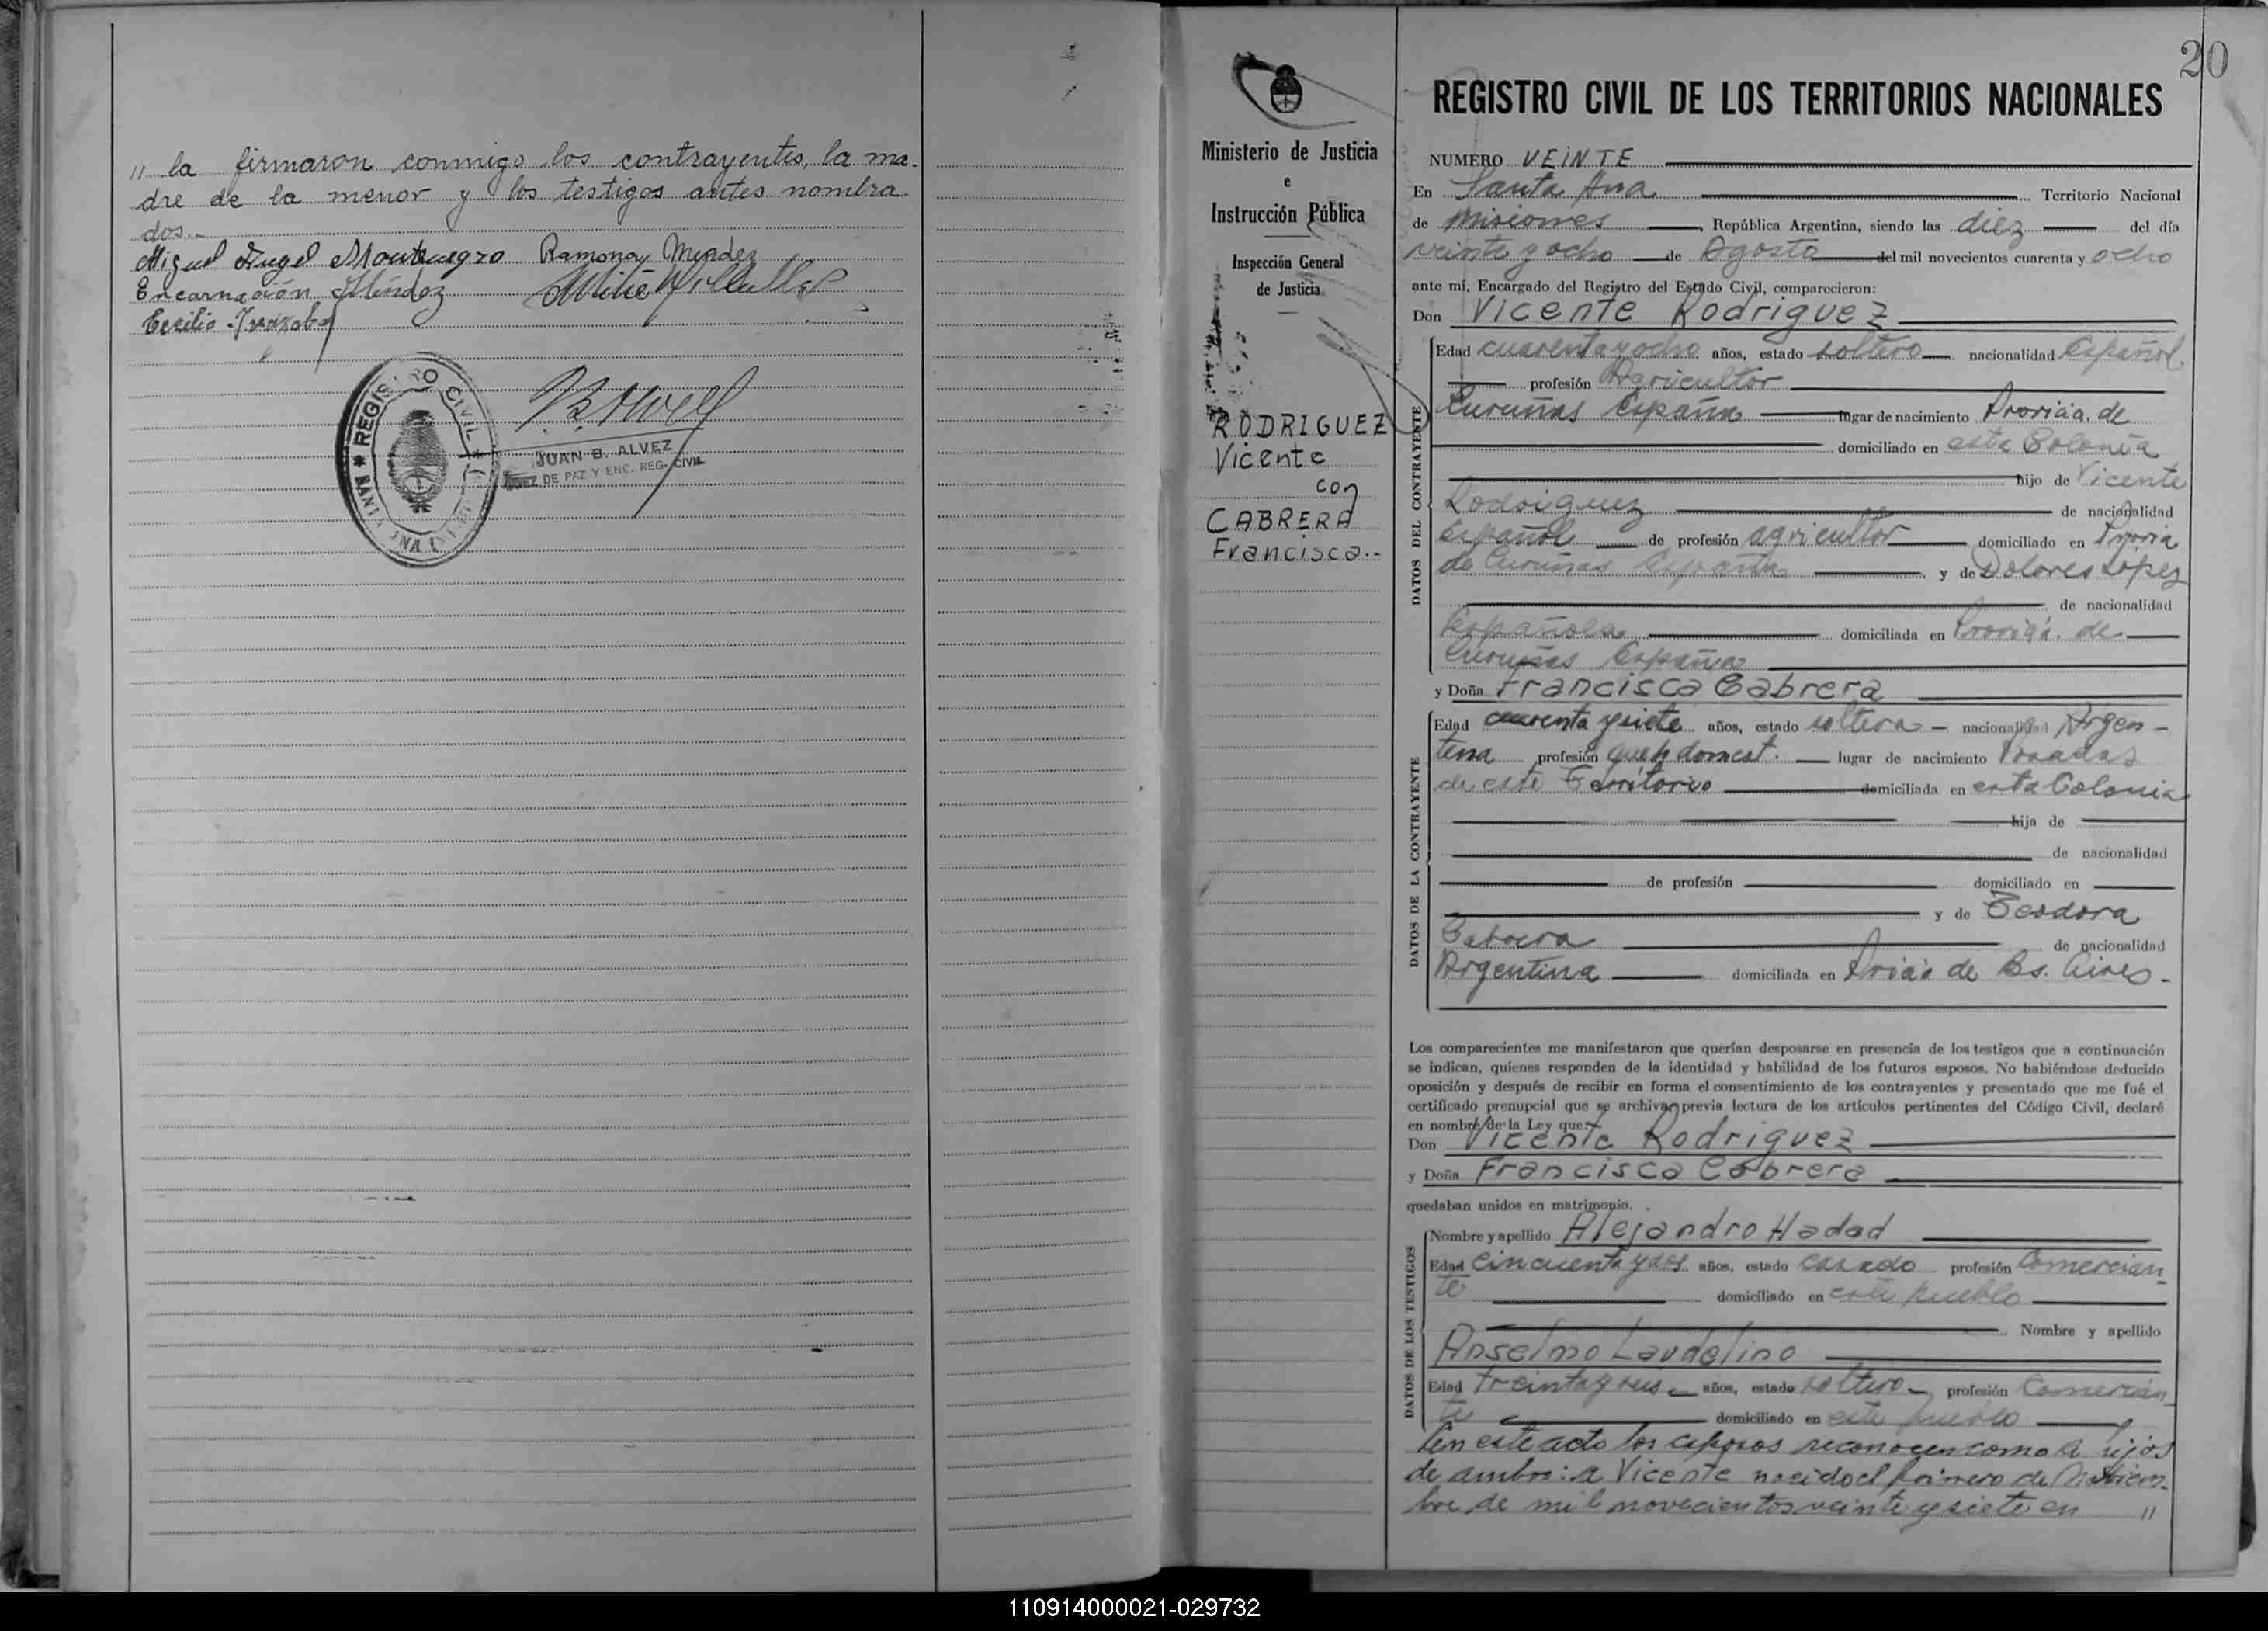 " la firmaron conmigo los contrayentes, la ma-
dre de la menor y los testigos antes nombra
dos.-
Miguel Angel Montenegro Ramona Mendez
Encarnación Méndez
Cecilio
REGISTRO CIVIL
JUAN B. ALVEZ
JUEZ DE PAZ Y ENC. REG. CIVIL
Ministerio de Justicia
e
Instrucción Pública
Inspección General
de Justicia
RODRIGUEZ
Vicente
con
CABRERA
Francisca.-
20
REGISTRO CIVIL DE LOS TERRITORIOS NACIONALES
NUMERO VEINTE
En Santa Ana Territorio Nacional
de Misiones, República Argentina, siendo las diez del día
veinte y ocho de Agosto del mil novecientos cuarenta y ocho
ante mí, Encargado del Registro del Estado Civil, comparecieron:
Don Vicente Rodriguez
DATOS DEL CONTRAYENTE
Edad cuarenta y ocho años, estado soltero nacionalidad Español
profesión Agricultor
Curuñas España lugar de nacimiento Provicia de
domiciliado en esta Colonia
hijo de Vicente
Rodriguez de nacionalidad
español de profesión agricultor domiciliado en
de Curuñas España y de Dolores Lopez
de nacionalidad
Española domiciliada en de
Curuñas España
y Doña Francisca Cabrera
DATOS DE LA CONTRAYENTE
Edad cuarenta y siete años, estado soltera nacionalidad Argen-
tina profesión queh domest. lugar de nacimiento Posadas
de este Territorio domiciliada en esta Colonia
hija de
de nacionalidad
de profesión domiciliado en
y de Teodora
Cabrera de nacionalidad
Argentina domiciliada en de Bs. Aires -
Los comparecientes me manifestaron que querían desposarse en presencia de los testigos que a continuación
se indican, quienes responden de la identidad y habilidad de los futuros esposos. No habiéndose deducido
oposición y después de recibir en forma el consentimiento de los contrayentes y presentado que me fué el
certificado prenupcial que se archiva, previa lectura de los artículos pertinentes del Código Civil, declaré
en nombre de la Ley que:
Don Vicente Rodriguez
y Doña Francisca Cabrera
quedaban unidos en matrimonio.
DATOS DE LOS TESTIGOS
Nombre y apellido Alejandro Hadad
Edad cincuenta y dos años, estado casado profesión Comercian
te domiciliado en este pueblo
Nombre y apellido
Anselmo Laudelino
Edad treinta y seis años, estado soltero profesión Comercian
te domiciliado en este pueblo
En este acto los esposos reconocen como a hijos
de ambos: a Vicente nacido el primero de
bre de mil novecientos veinte y siete en "
110914000021-029732